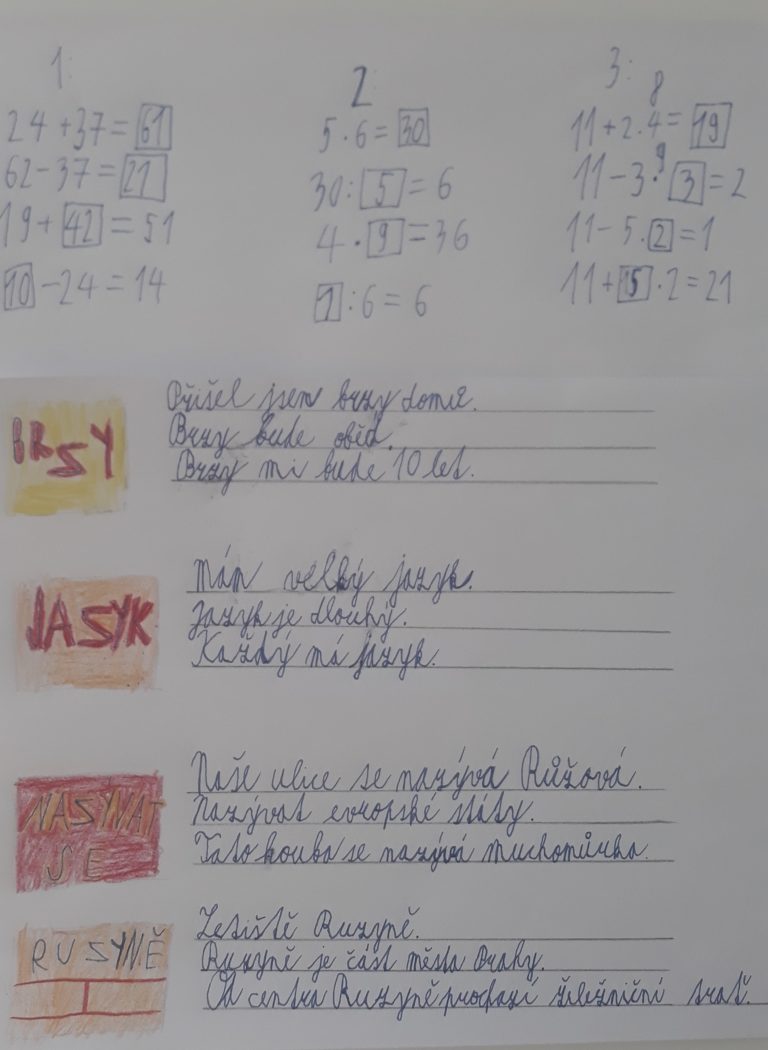 1:
24 + 37 = 61
62 - 37 = 21
19 + 42 = 51
10 - 24 = 14
2
5 · 6 = 30
30 : 5 = 6
4 · 9 = 36
1 : 6 = 6
3:
8
11 + 2 · 4 = 19
9
11 - 3 · 3 = 2
11 - 5 · 2 = 1
11 + 15 · 2 = 21
BRSY
Přišel jsem brzy domů.
Brzy bude oběd.
Brzy mi bude 10 let.
JASYK
Mám velký jazyk.
Jazyk je dlouhý.
Každý má jazyk.
NASÝVAT
SE
Naše ulice se nazývá Růžová.
Nazývat evropské státy.
Tato houba se nazývá muchomůrka.
RUSYNĚ
Letiště Ruzyně.
Ruzyně je část města Prahy.
Od centra Ruzyně prochází želežniční trať.